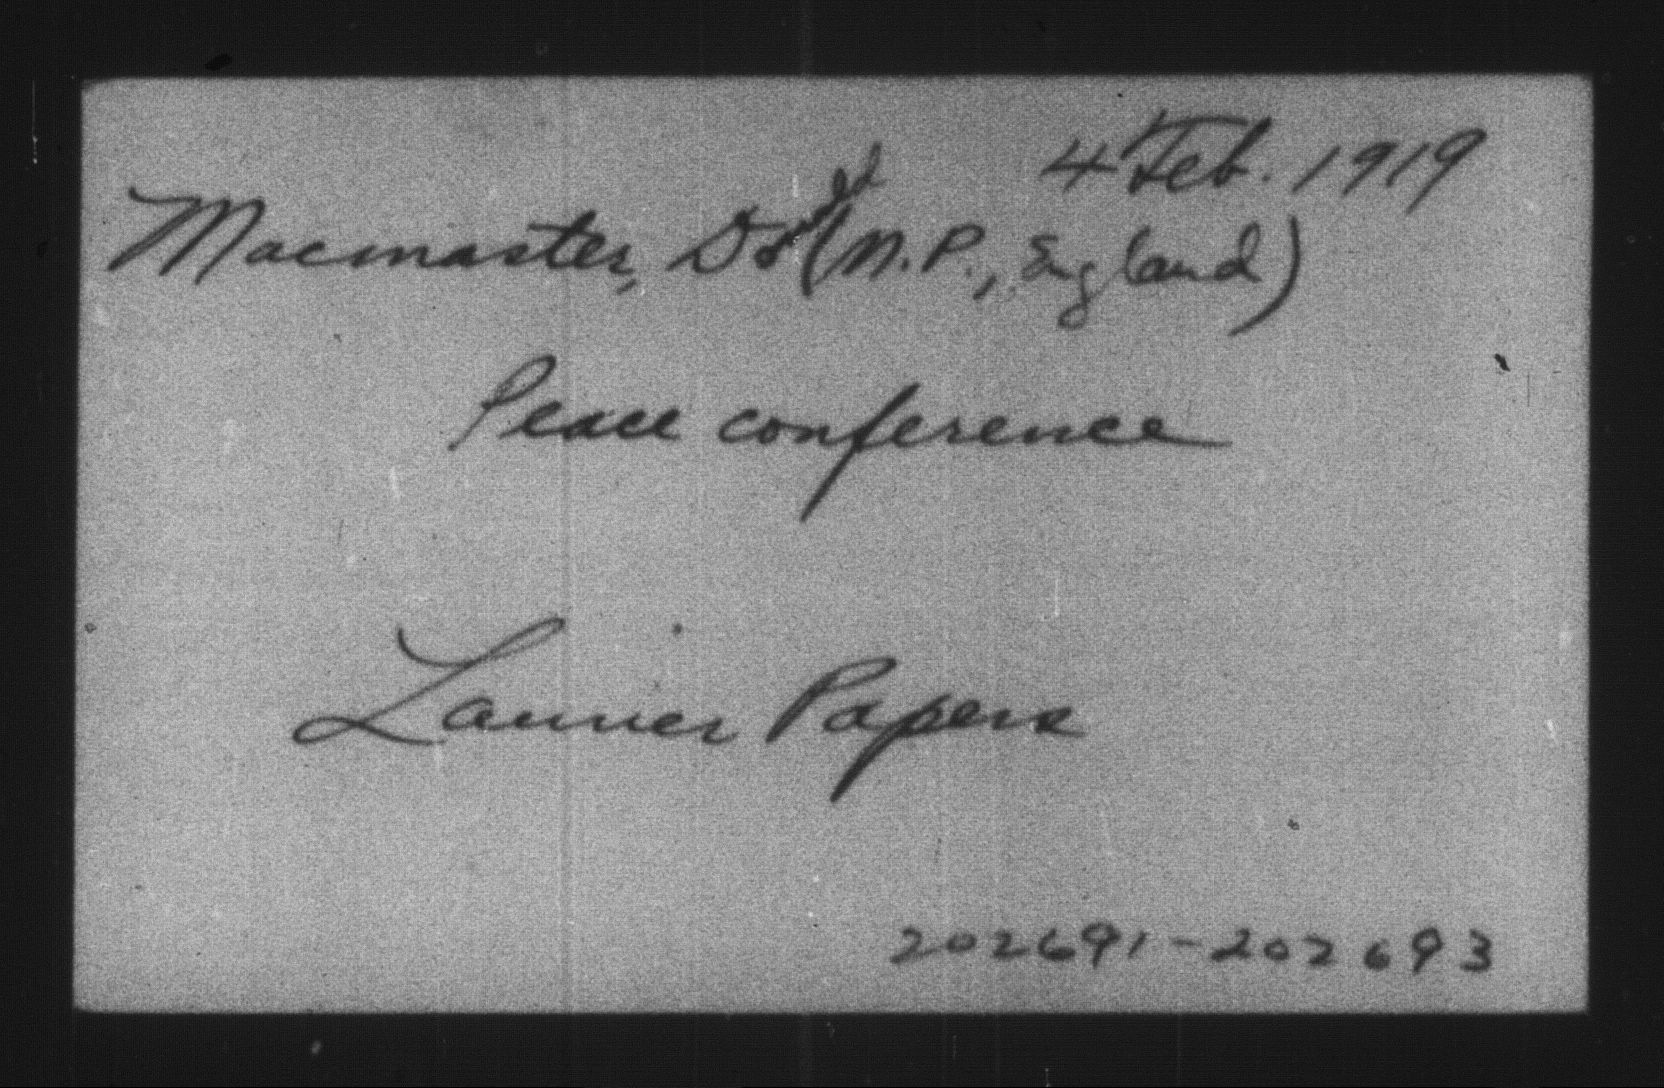 4 Feb. 1919
Macmaster, Donald (M.P., England)
Peace conference
Laurier Papers
202691-202693